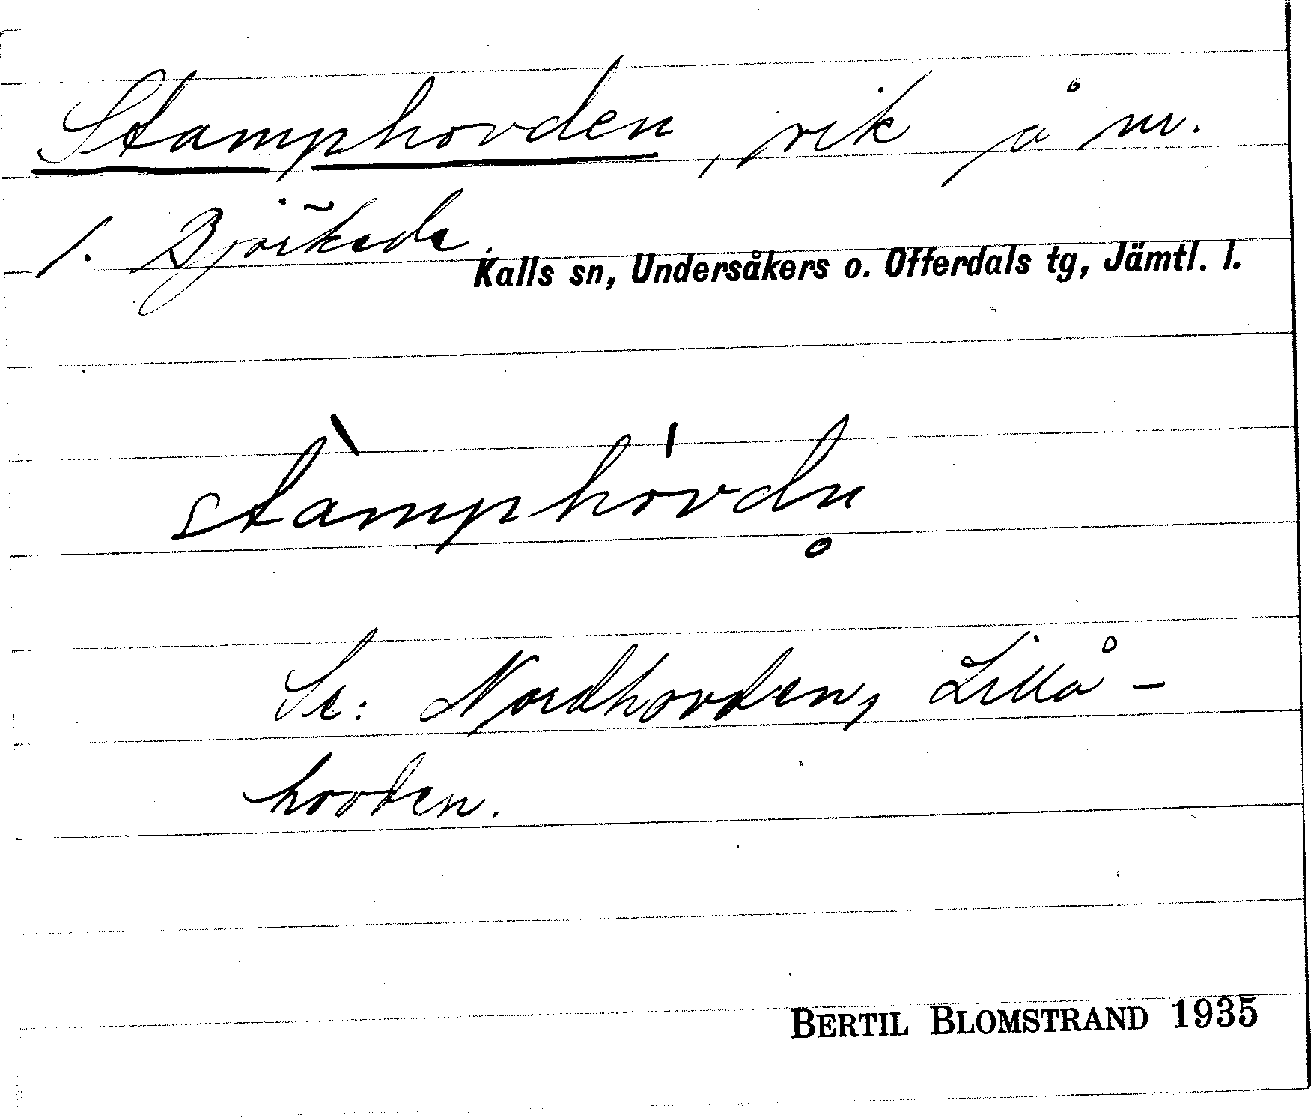 Stamphovden, vik å nr.
1. Björkede.
Kalls sn, Undersåkers o. Offerdals tg, Jämtl. l.
stàmphóvdn̥
Se: Nordhovden, Lillå-
hovden.
BERTIL BLOMSTRAND 1935